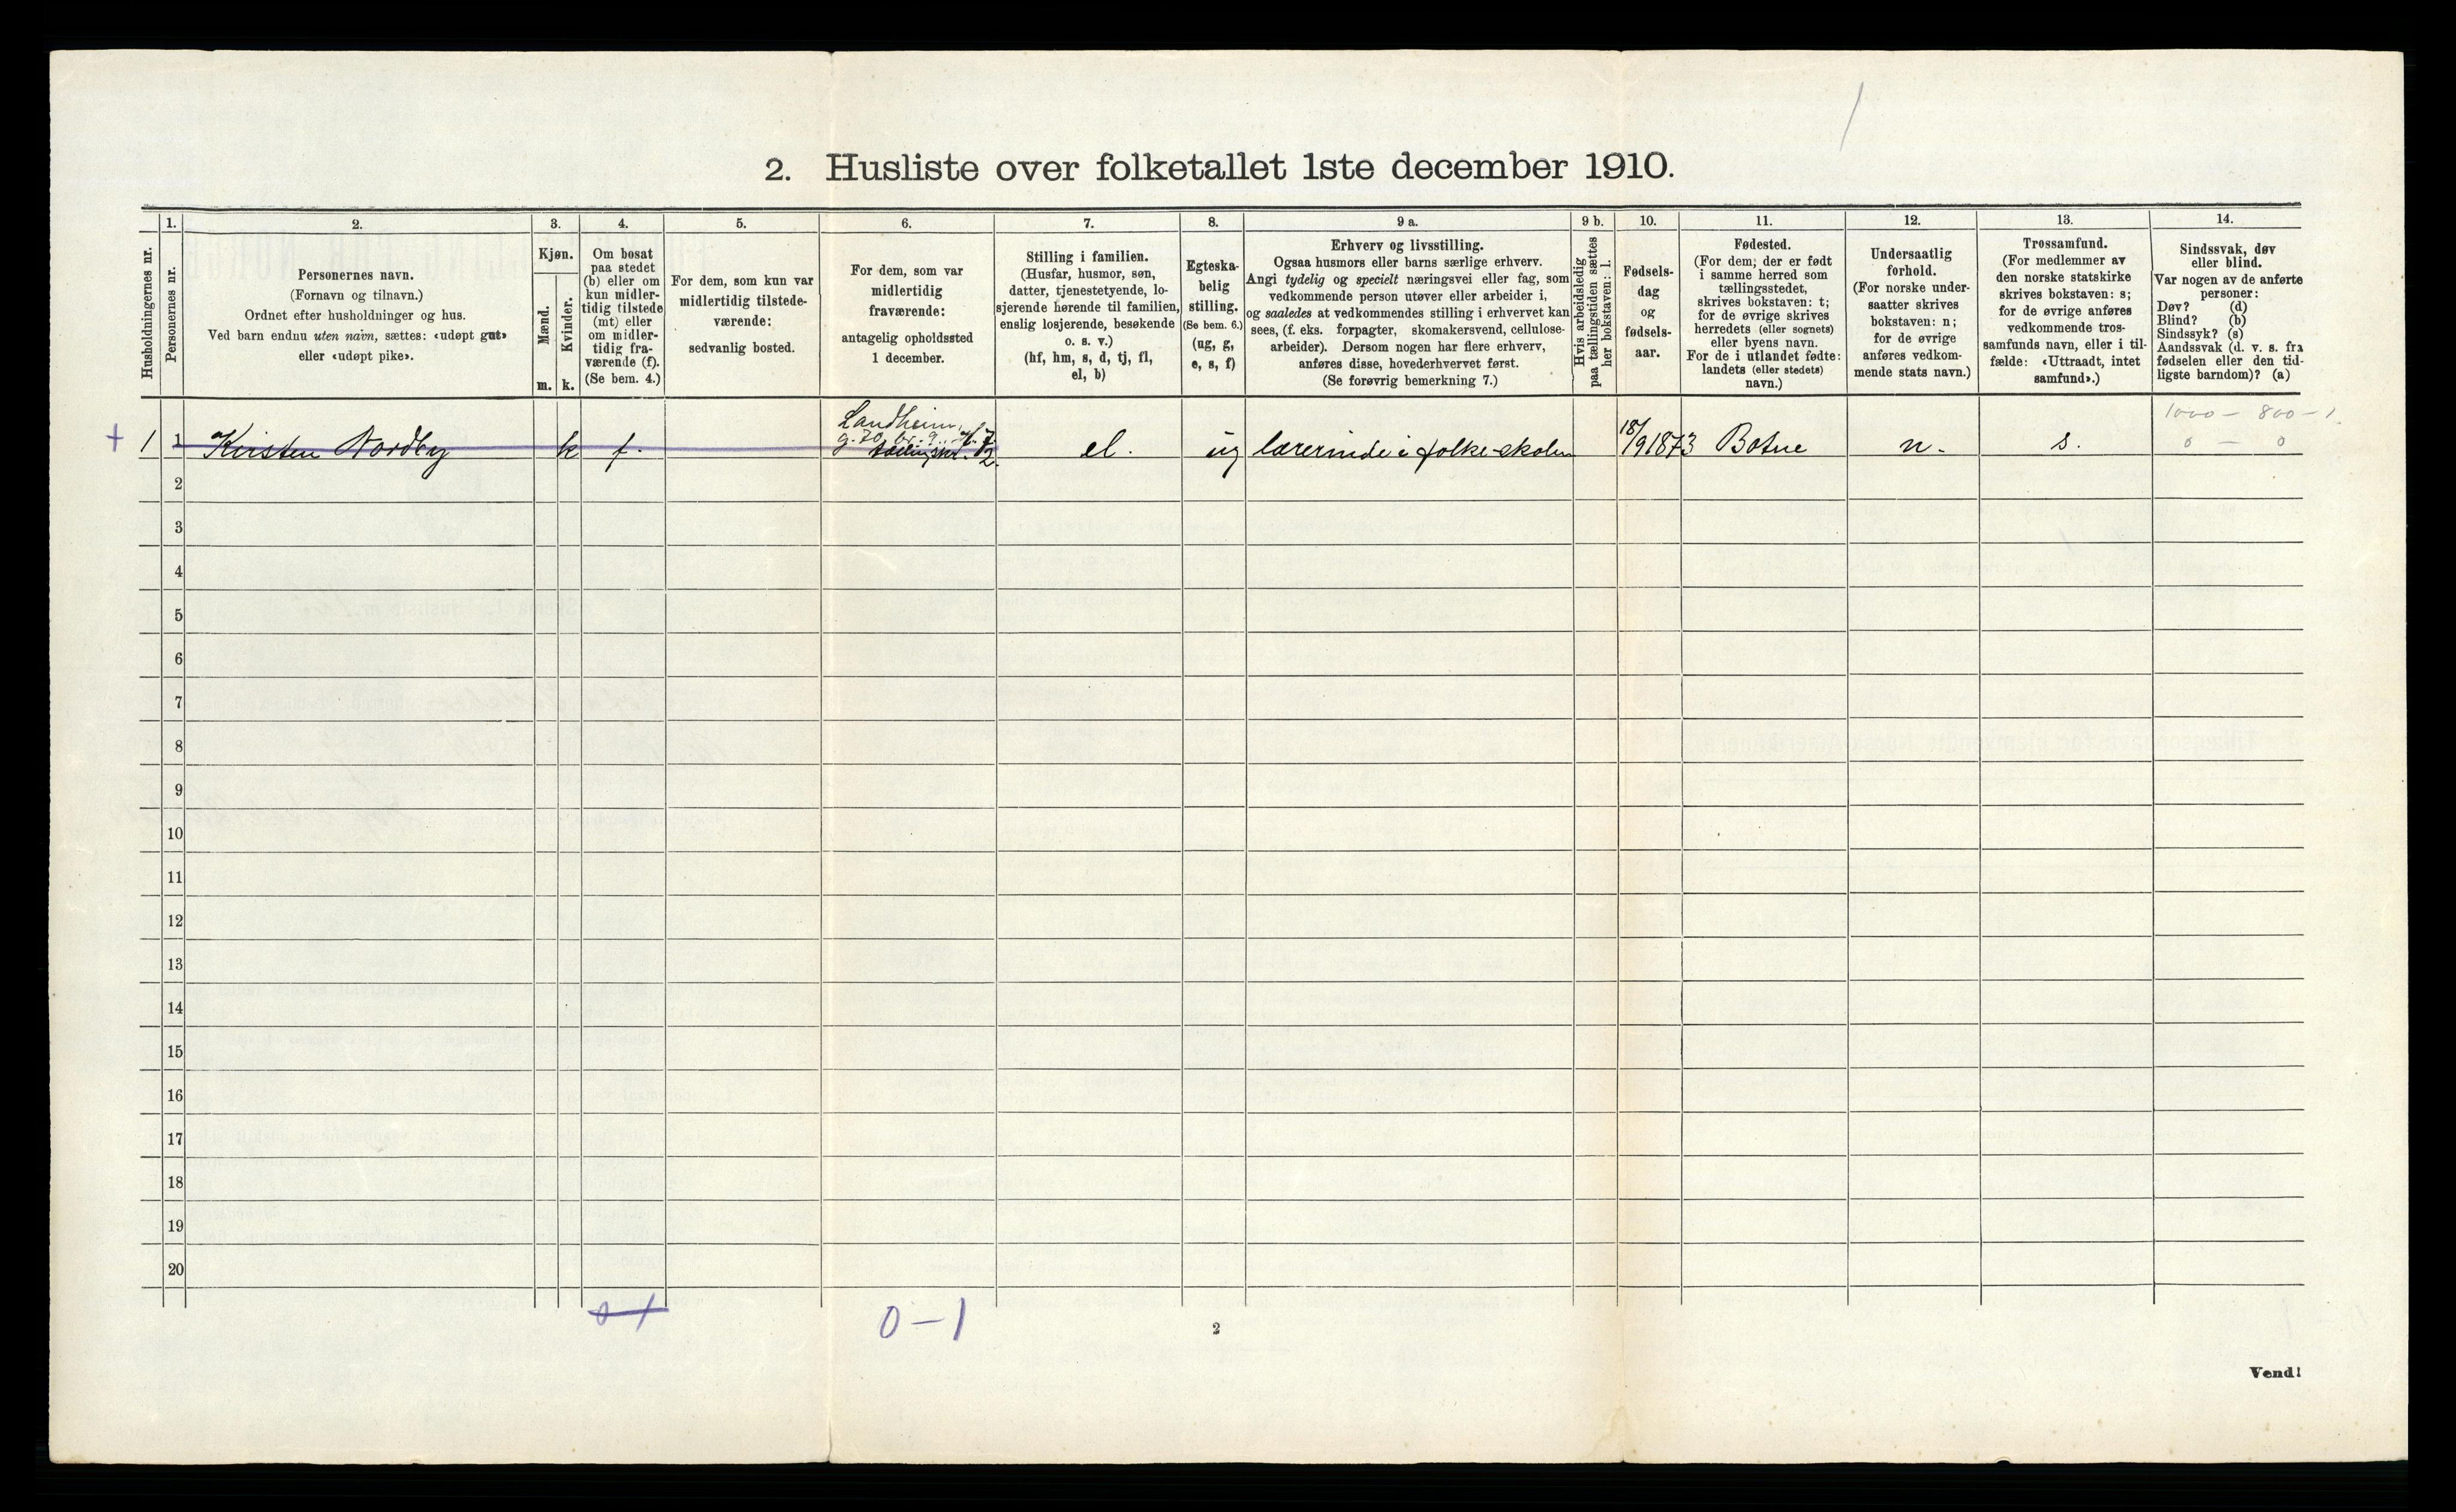 2. Husliste over folketallet 1ste december 1910.
Husholdningernes nr.
1.
Personernes nr.
2.
Personernes navn.
(Fornavn og tilnavn.)
Ordnet efter husholdninger og hus.
Ved barn endnu uten navn, sættes: «udøpt gut»
eller «udøpt pike».
3.
Kjøn.
Mænd.
Kvinder.
m. k.
4.
Om bosat
paa stedet
(b) eller om
kun midler-
tidig tilstede
(mt) eller
om midler-
tidig fra-
værende (f).
(Se bem. 4.)
5.
For dem, som kun var
midlertidig tilstede-
værende:
sedvanlig bosted.
6.
For dem, som var
midlertidig
fraværende:
antagelig opholdssted
1 december.
7.
Stilling i familien.
(Husfar, husmor, søn,
datter, tjenestetyende, lo-
sjerende hørende til familien,
enslig losjerende, besøkende
o. s. v.)
(hf, hm, s, d, tj, fl,
el, b)
8.
Egteska-
belig
stilling.
(Se bem. 6.)
(ug, g,
e, s, f)
9 a.
Erhverv og livsstilling.
Ogsaa husmors eller barns særlige erhverv.
Angi tydelig og specielt næringsvei eller fag, som
vedkommende person utøver eller arbeider i,
og saaledes at vedkommendes stilling i erhvervet kan
sees, (f. eks. forpagter, skomakersvend, cellulose-
arbeider). Dersom nogen har flere erhverv,
anføres disse, hovederhvervet først.
(Se forøvrig bemerkning 7.)
9 b.
Hvis arbeidsledig
paa tællingstiden sættes
her bokstaven: l.
10.
Fødsels-
dag
og
fødsels-
aar.
11.
Fødested.
(For dem, der er født
i samme herred som
tællingsstedet,
skrives bokstaven: t;
for de øvrige skrives
herredets (eller sognets)
eller byens navn.
For de i utlandet fødte:
landets (eller stedets)
navn.)
12.
Undersaatlig
forhold.
(For norske under-
saatter skrives
bokstaven: n;
for de øvrige
anføres vedkom-
mende stats navn.)
13.
Trossamfund.
(For medlemmer av
den norske statskirke
skrives bokstaven: s;
for de øvrige anføres
vedkommende tros-
samfunds navn, eller i til-
fælde: «Uttraadt, intet
samfund».)
14.
Sindssvak, døv
eller blind.
Var nogen av de anførte
personer:
Døv? (d)
Blind? (b)
Sindssyk? (s)
Aandssvak (d. v. s. fra
fødselen eller den tid-
ligste barndom)? (a)
Landheim,
1000 - 800 - 1
+ 1 1 Kirsten Nordby k f. el. ug lærerinde i folkeskolen 18/9 1873 Botne n. s. 0 - 0
2
3
4
5
6
7
8
9
10
11
12
13
14
15
16
17
18
19
20
0-1
2
Vend!